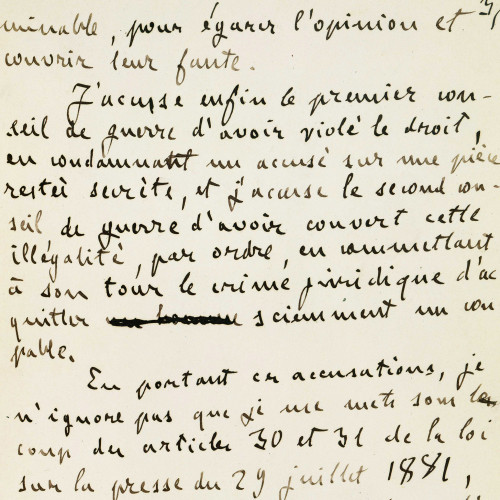 minable, pour égarer l'opinion et
couvrir leur faute.
J'accuse enfin le premier con-
seil de guerre d'avoir violé le droit,
en condamnant un accusé sur une pièce
restée secrète, et j'accuse le second con-
seil de guerre d'avoir couvert cette
illégalité, par ordre, en commettant
à son tour le crime juridique d'ac
quitter sciemment un cou
pable.
En portant ces accusations, je
n'ignore pas que je me mets sous le
coup des articles 30 et 31 de la loi
sur la presse du 29 juillet 1881,